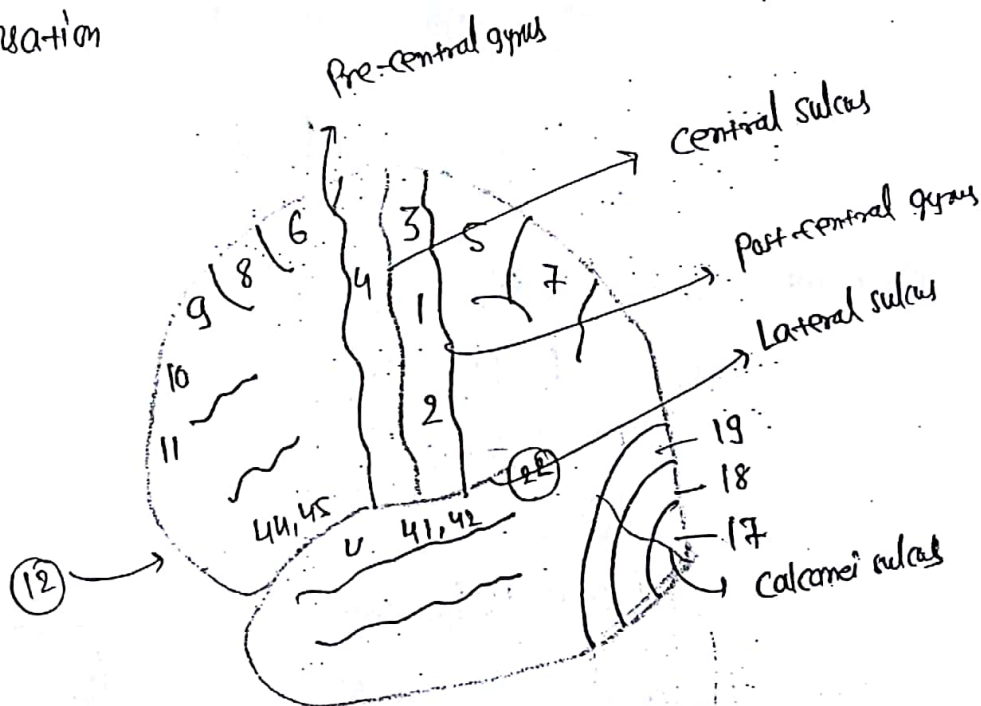 Pre-central gyrus
central sulcus
Post-central gyrus
Lateral sulcus
6
3
5
8
4
7
9
1
10
2
11
22
19
18
44,45
41,42
17
12
calcanei sulcus